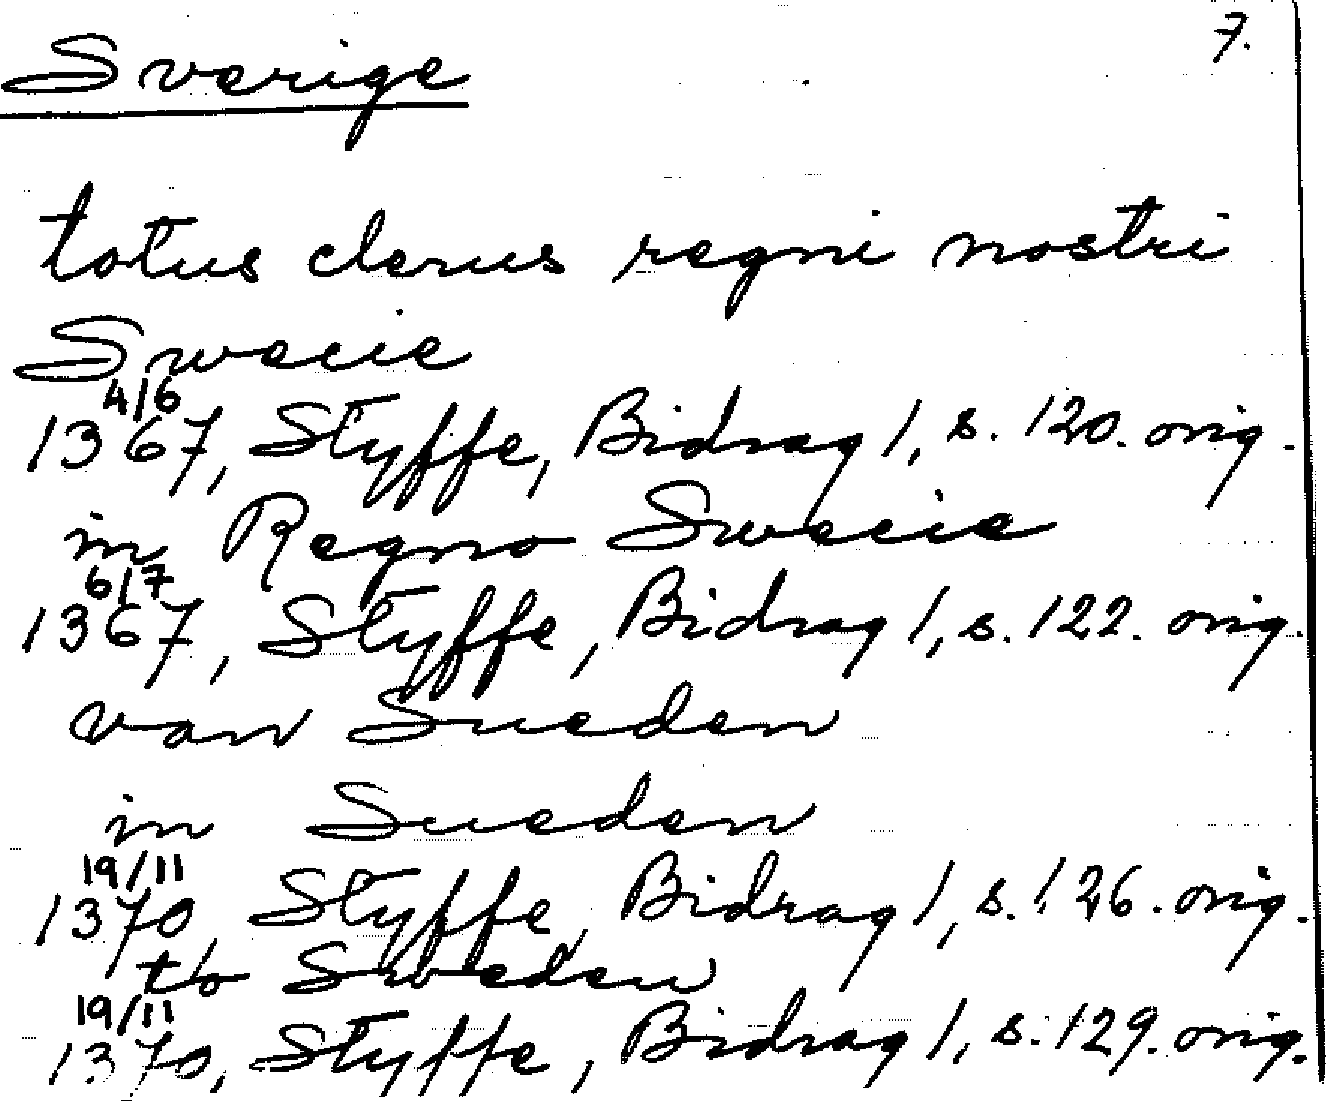 7.
Sverige
totus clerus regni nostri
Swecie
4/6
1367, Styffe, Bidrag 1, s. 120. orig.
in Regno Swecie
6/7
1367, Styffe, Bidrag 1, s. 122. orig.
van Sueden
in Sueden
19/11
1370, Styffe, Bidrag 1, s. 126. orig.
to Sweden
19/11
1370, Styffe, Bidrag 1, s. 129. orig.